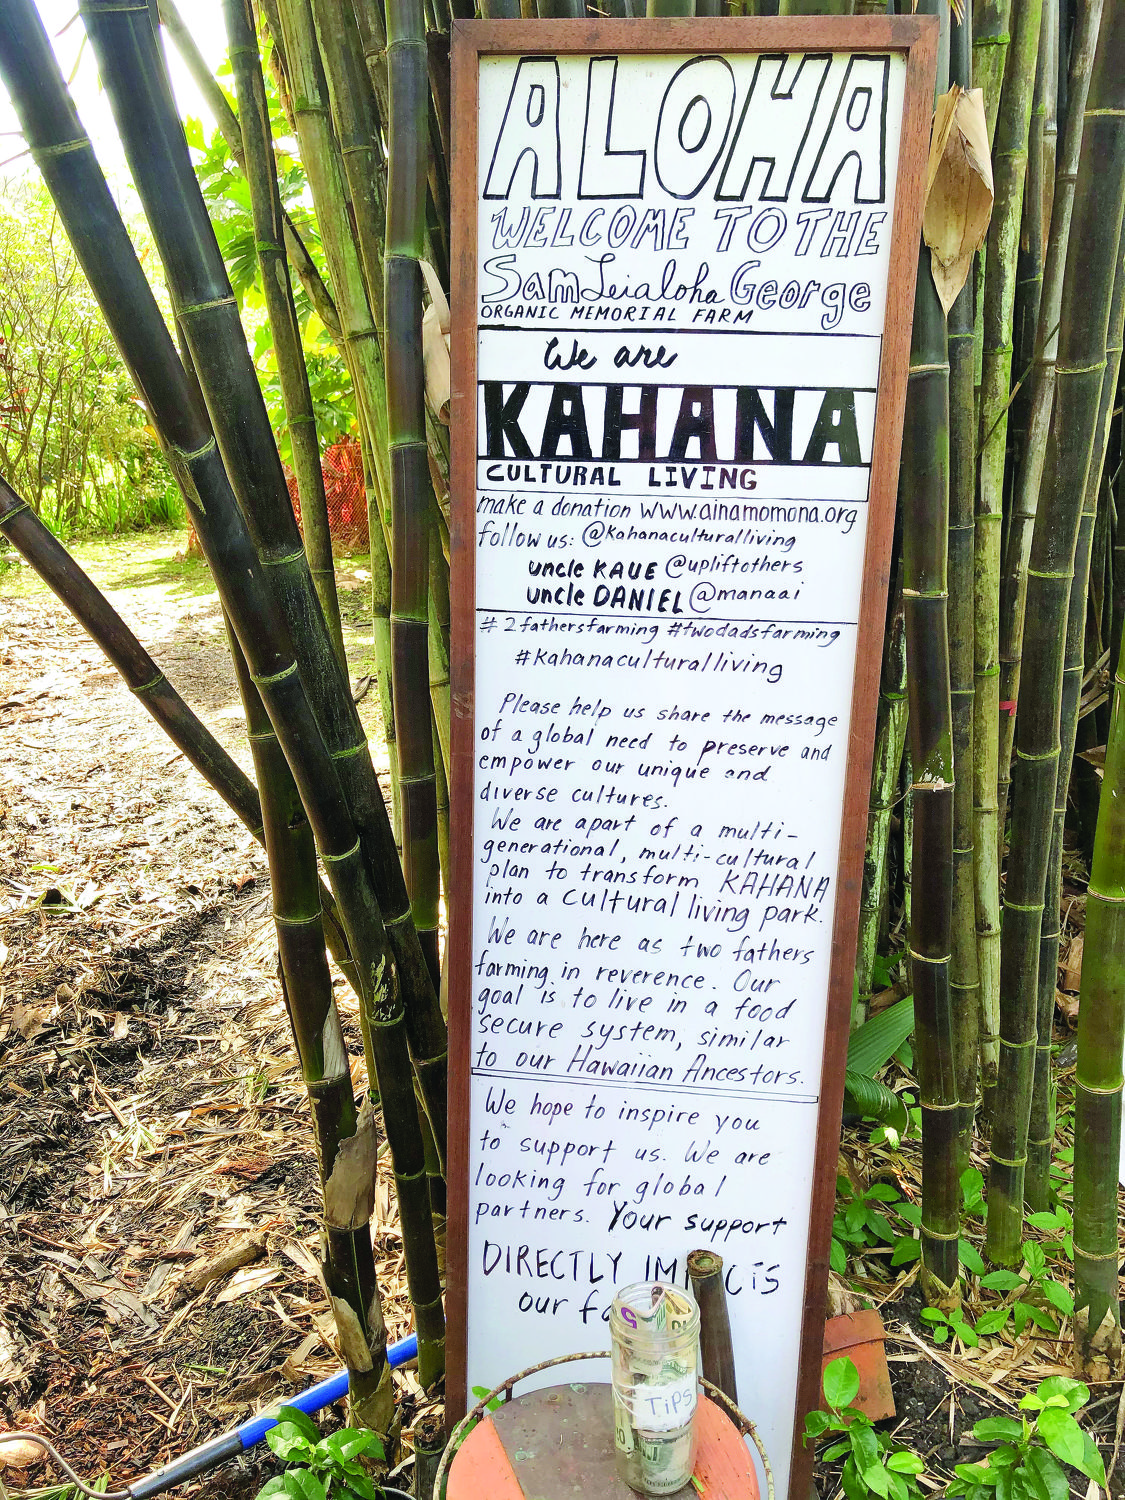 ALOHA
WELCOME TO THE
Sam Leialoha George
ORGANIC MEMORIAL FARM
We are
KAHANA
CULTURAL LIVING
make a donation www.ainamomona.org
follow us: @kahanaculturalliving
uncle KAUE @upliftothers
uncle DANIEL @manaai
#2fathersfarming #twodadsfarming
#kahanaculturalliving
Please help us share the message
of a global need to preserve and
empower our unique and
diverse cultures.
We are apart of a multi-
generational, multi-cultural
plan to transform KAHANA
into a cultural living park.
We are here as two fathers
farming in reverence. Our
goal is to live in a food
secure system, similar
to our Hawaiian Ancestors.
We hope to inspire you
to support us. We are
looking for global
partners. Your support
DIRECTLY
our
TiPS
5